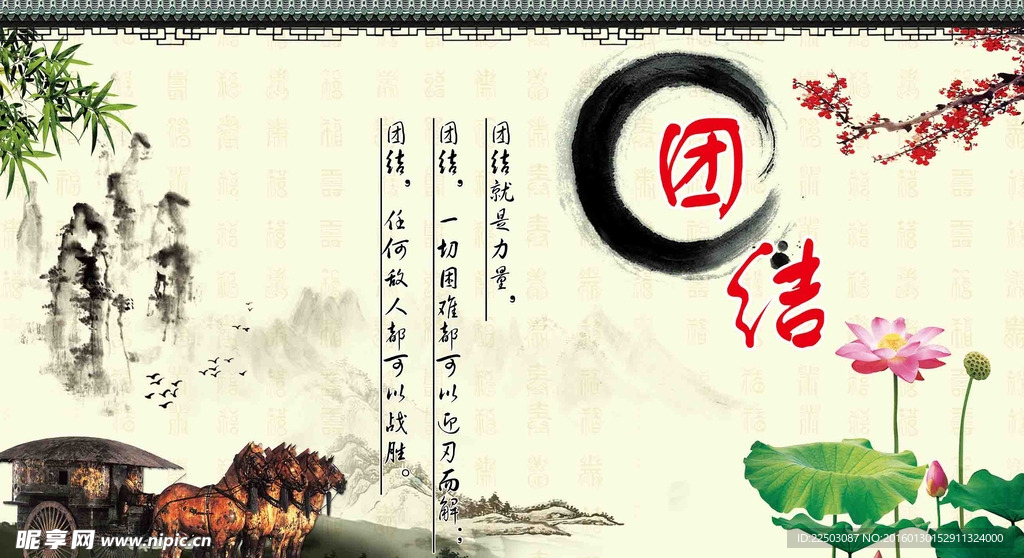 团结
团结就是力量，
团结，一切困难都可以迎刃而解；
团结，任何敌人都可以战胜。
昵享网 www.nipic.cn
ID:22503087 NO:20160130152911324000